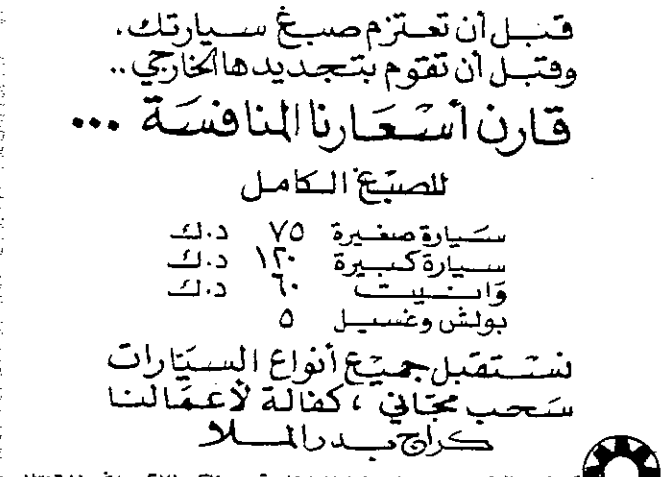 قبل أن تعتزم صبغ سيارتك.
وقبل أن تقوم بتجديدها الخارجي..
قارن أسعارنا المنافسة ...
للصبغ الكامل
سيارة صغيرة ٧٥ د.ك
سيارة كبيرة ١٢٠ د.ك
وانيت ٦٠ د.ك
بولش وغسيل ٥
نستقبل جميع أنواع السيارات
سحب مجاني ، كفالة لأعمالنا
كراج بدر الملا